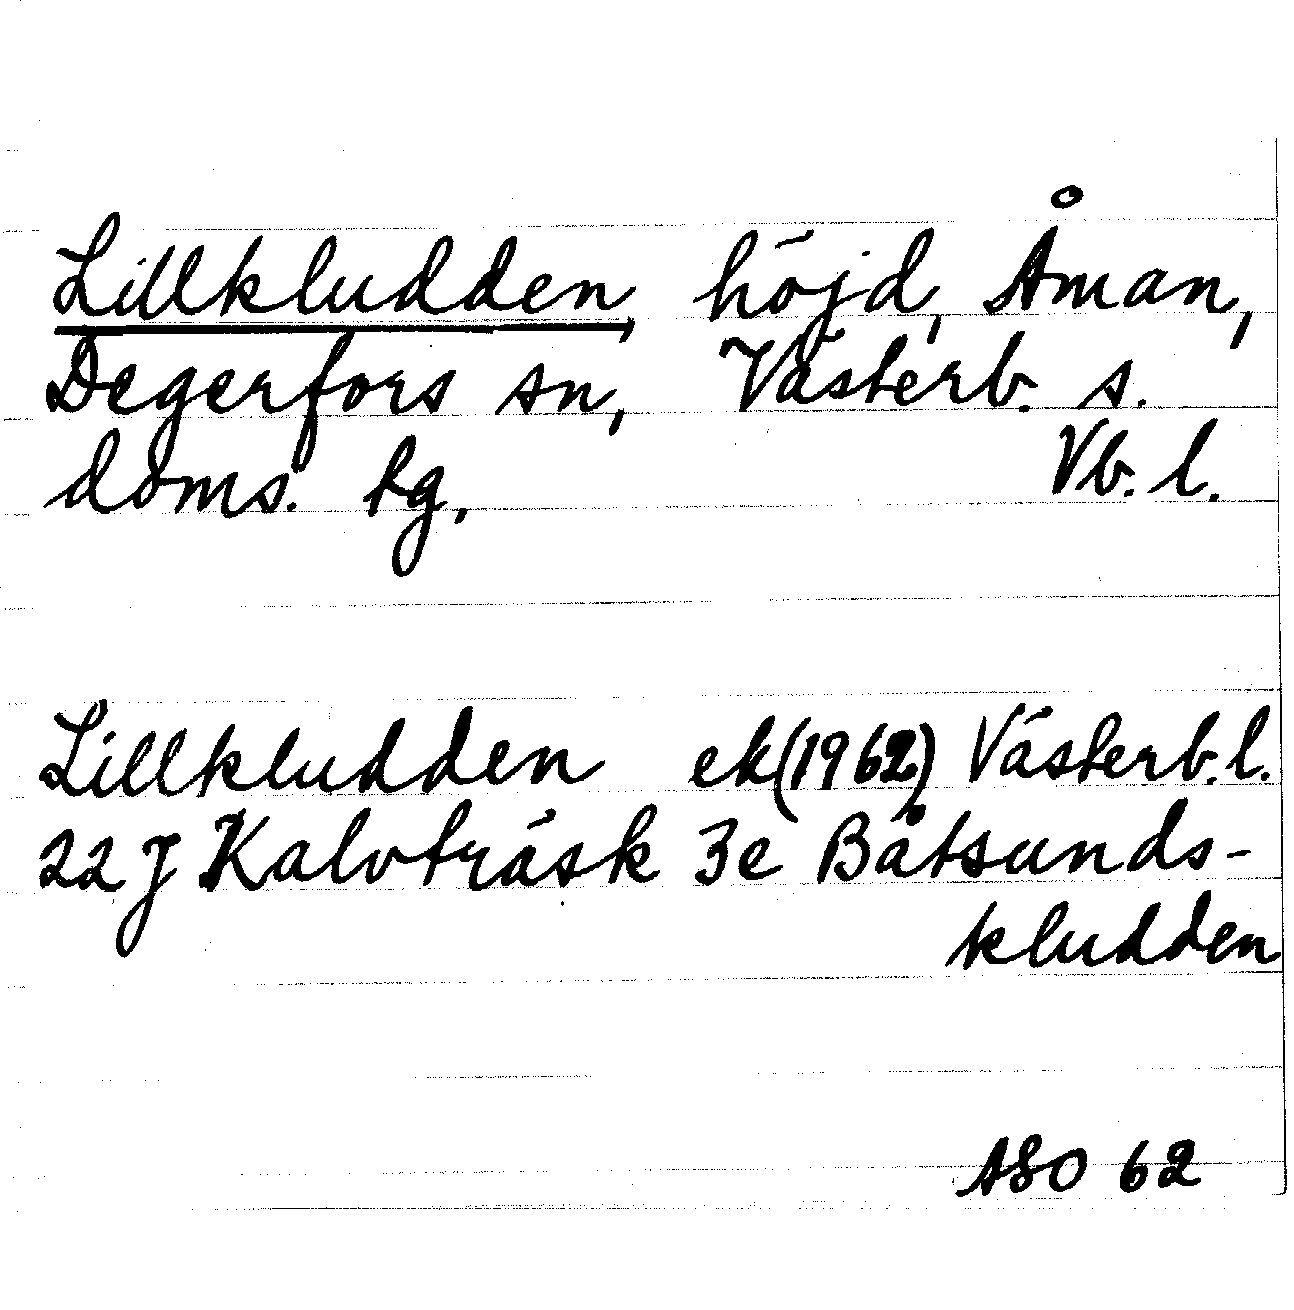 Lillkludden, höjd, Åman,
Degerfors sn, Västerb. s.
doms. lg, Vb. l.
Lillkludden ek (1962) Västerb. l.
22 J Kalvträsk 3e Båtsunds-
kludden
ASO 62